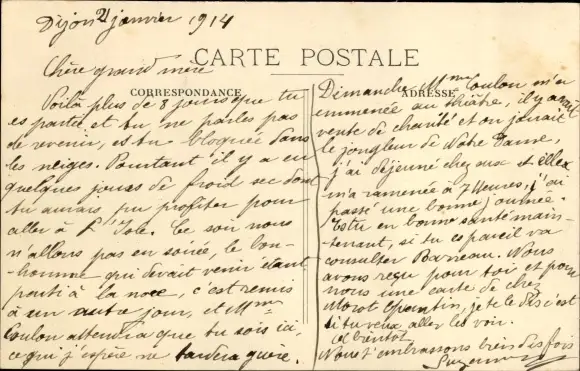 Dijon 21 janvier 1914
CARTE POSTALE
Chère grand mère
CORRESPONDANCE
Voilà plus de 8 jours que tu
es partie et tu ne parles pas
de revenir, es tu bloquée dans
les neiges. Pourtant il y a eu
quelques jours de froid sec dont
tu aurais pu profiter pour
aller à
n'allons pas en soirée, le bon-
homme qui devait venir étant
parti à la noce, c'est remis
à un autre jour, et Mme
Coulon attendra que tu sois ici,
ce qui j'espère ne tardera guère.
ADRESSE
Dimanche Mme Coulon m'a
emmenée au théâtre, il y avait
vente de charité et on jouait
le jongleur de Notre Dame,
j'ai déjeuné chez eux et elle
m'a ramenée à 7 Heures, j'ai
passé une bonne journée.
Es tu en bonne santé main-
tenant, si tu es pareil va
consulter Barneau. Nous
avons reçu pour toi et pour
nous une carte de chez
Morot Quantin, je te le dis c'est
si tu veux aller les voir.
A bientôt
Nous t'embrassons bien des fois
Suzanne